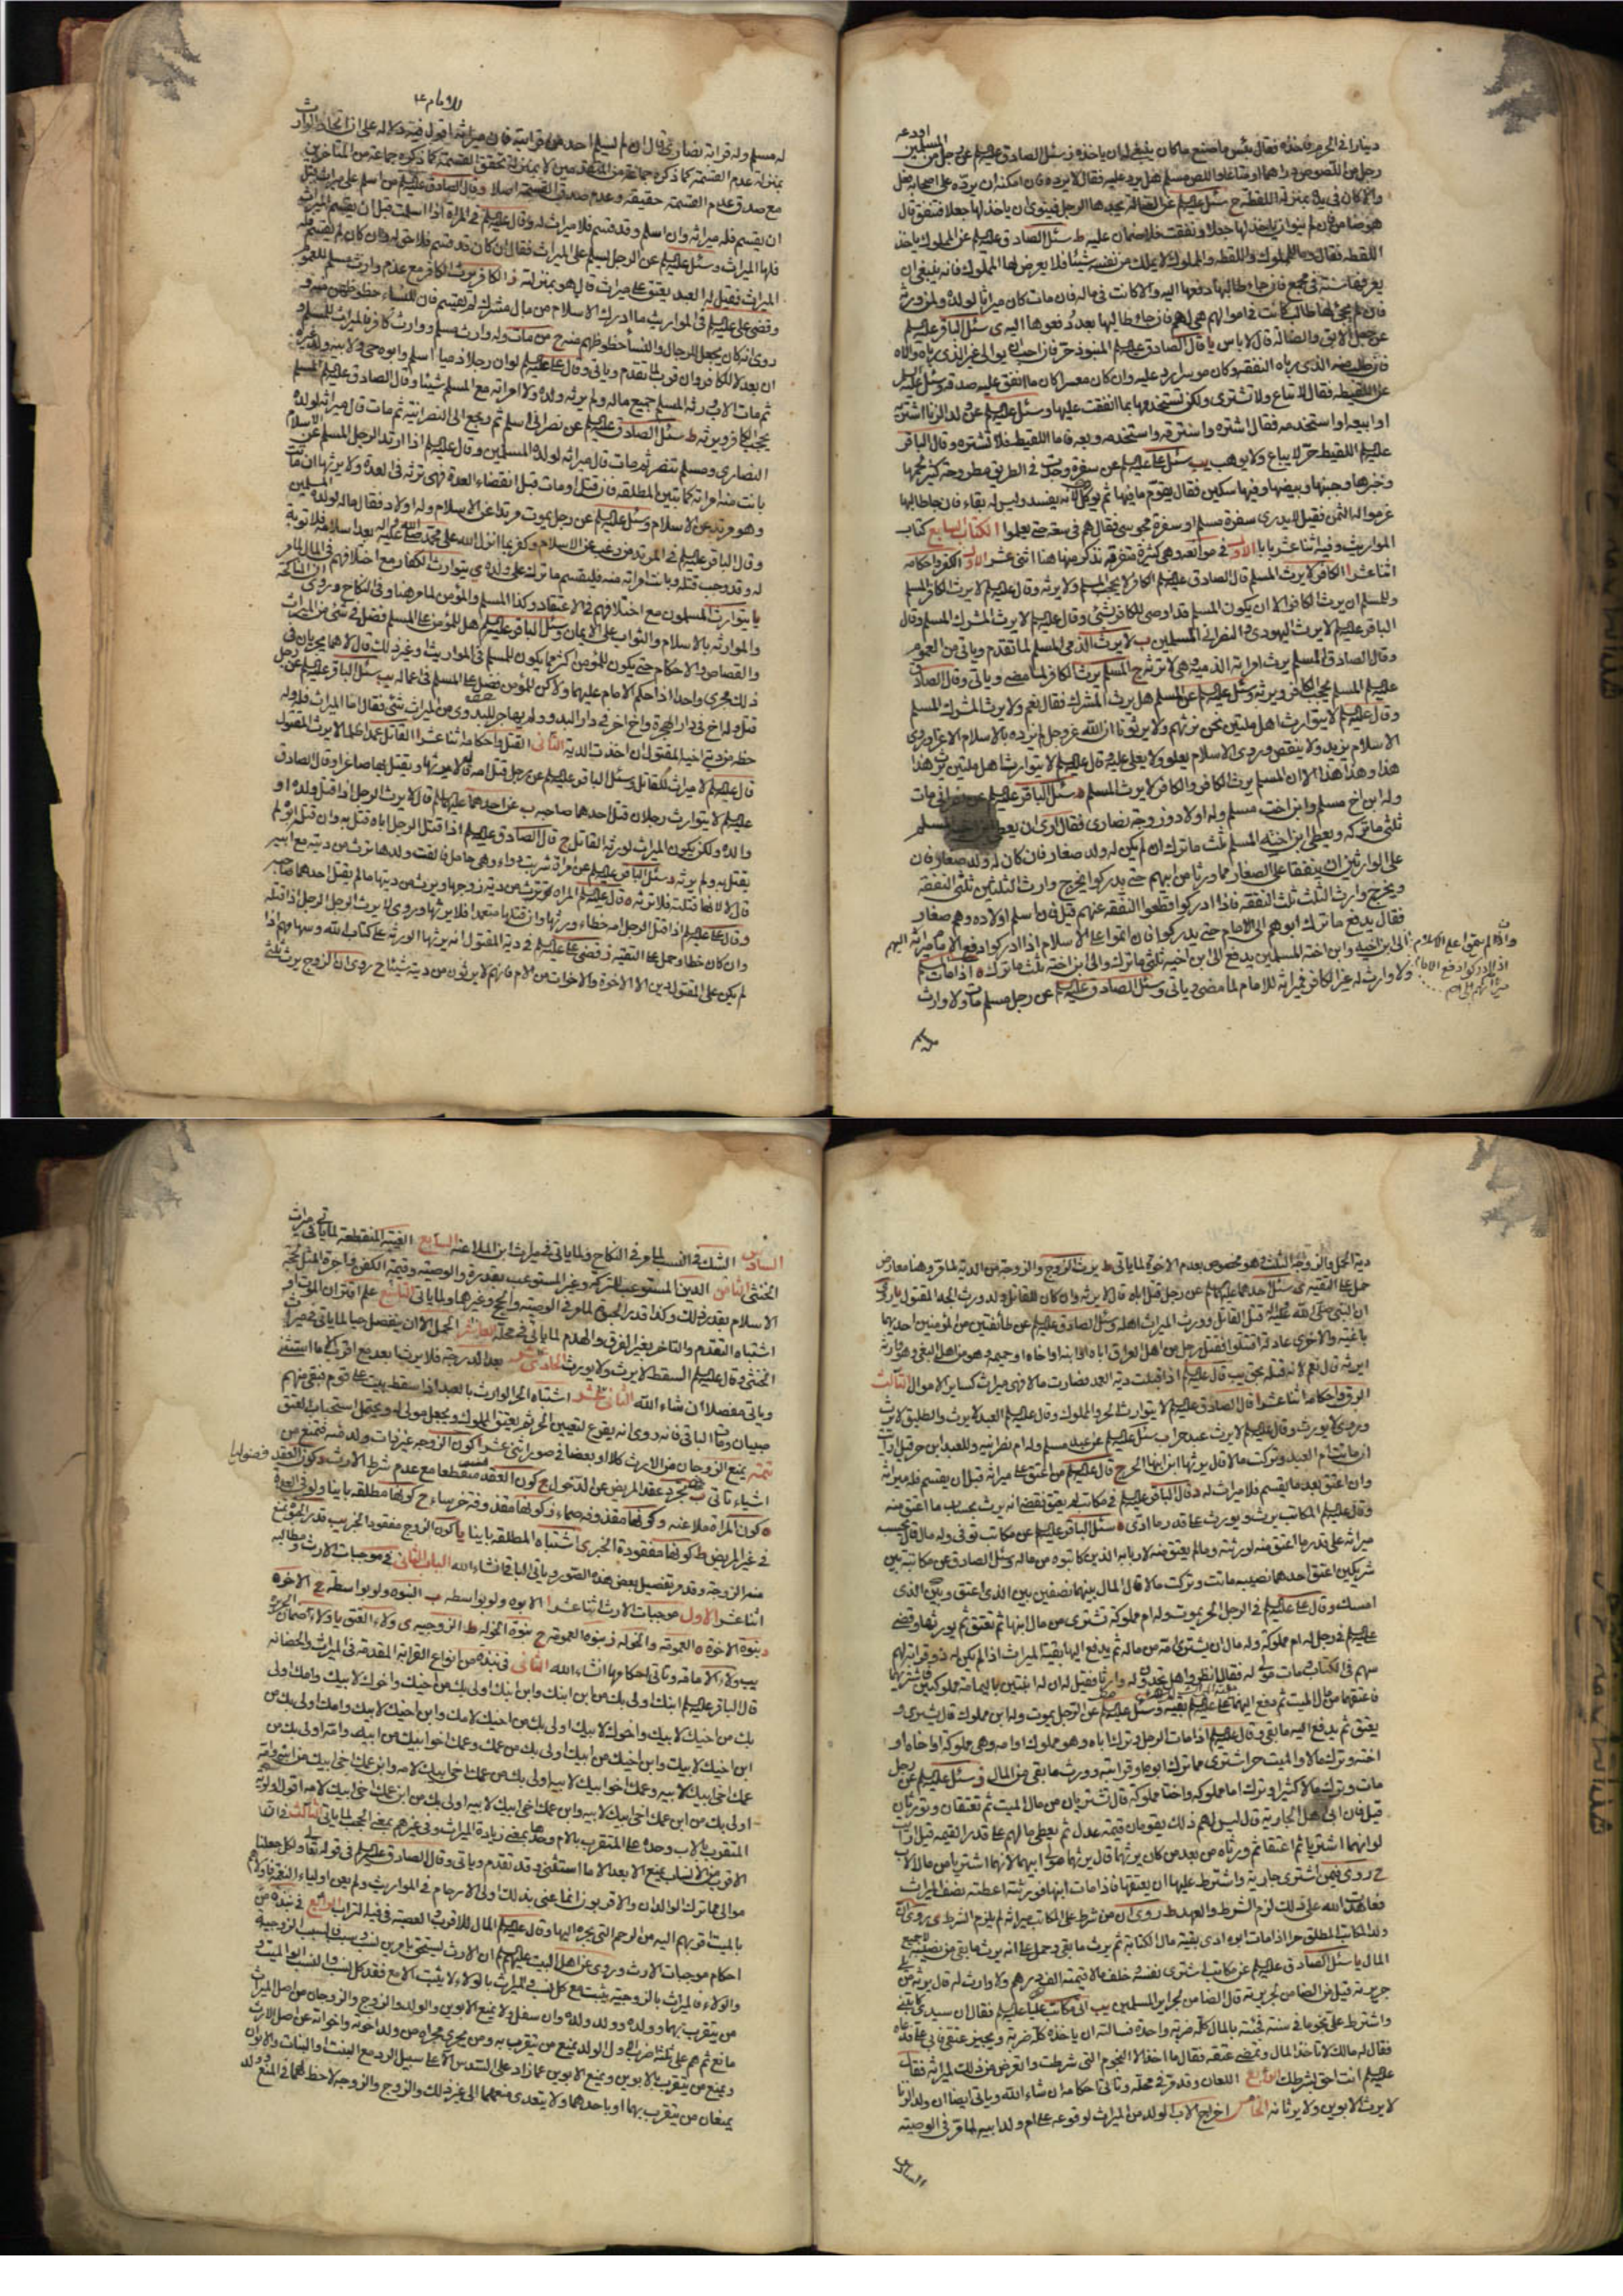 دينارا في الحرم فاخذه فقال بئس ما صنع ما كان ينبغي له ان ياخذه وسئل الصادق عليه السلم عن رجل من المسلمين اودعه
رجل من اللصوص دراهم او متاعا واللص مسلم هل يرد عليه فقال لا يرده فان امكنه ان يرده على اصحابه فعل
والا كان في يده بمنزلة اللقطة ح سئل عليه السلم عن الضالة يجدها الرجل فينوي ان ياخذ لها جعلا فتنفق قال
هو ضامن فان لم ينو ان ياخذ لها جعلا ونفقت فلا ضمان عليه ط سئل الصادق عليه السلم عن المملوك ياخذ
اللقطة فقال وما للمملوك واللقطة والمملوك لا يملك من نفسه شيئا فلا يعرض لها المملوك فانه ينبغي ان
يعرفها سنة في مجمع فان جاء طالبها دفعها اليه والا كانت في ماله فان مات كان ميراثا لولده ولمن ورثه
فان لم يجئ لها طالب كانت في اموالهم هي لهم فان جاء طالبها بعد دفعوها اليه ى سئل الباقر عليه السلم
عن جعل الابق والضالة قال لا باس يا قال الصادق عليه السلم المنبوذ حر فان احب ان يوالي غير الذي رباه والاه
فان طلب منه الذي رباه النفقة وكان موسرا رد عليه وان كان معسرا كان ما انفق عليه صدقة وسئل عليه السلم
عن اللقيطة فقال لا تباع ولا تشترى ولكن تستخدمها بما انفقت عليها وسئل عليه السلم عن ولد الزنا اشتريه
او ابيعه او استخدمه فقال اشتره واسترقه واستخدمه وبعه فاما اللقيط فلا تشتره وقال الباقر
عليه السلم اللقيط حر لا يباع ولا يوهب يب سئل علي عليه السلم عن سفرة وجدت في الطريق مطروحة كثير لحمها
وخبزها وجبنها وبيضها وفيها سكين فقال يقوم ما فيها ثم يوكل لانه يفسد وليس له بقاء فان جاء طالبها
غرموا له الثمن فقيل لا يدرى سفرة مسلم او سفرة مجوسي فقال هم في سعة حتى يعلموا الكتاب السابع كتاب
المواريث وفيه اثنا عشر بابا الاول في موانعه وهي كثيرة متفرقة نذكر منها هنا اثنى عشر الاول الكفر واحكامه
اثنا عشر ا الكافر لا يرث المسلم قال الصادق عليه السلم الكافر لا يحجب المسلم ولا يرثه وقال عليه السلم لا يرث الكافر المسلم
وللمسلم ان يرث الكافر الا ان يكون المسلم قد اوصى للكافر بشئ وقال عليه السلم لا يرث المشرك المسلم وقال
الباقر عليه السلم لا يرث اليهودي والنصراني المسلمين ب لا يرث الذمي المسلم لما تقدم وياتي من العموم
وقال الصادق المسلم يرث امراته الذمية وهي لا ترثه ج المسلم يرث الكافر لما مضى وياتي وقال الصادق
عليه السلم المسلم يحجب الكافر ويرثه وسئل عليه السلم عن المسلم هل يرث المشرك فقال نعم ولا يرث المشرك المسلم
وقال عليه السلم لا يتوارث اهل ملتين نحن نرثهم ولا يرثونا ان الله عز وجل لم يزده بالاسلام الا عزا وروى
الاسلام يزيد ولا ينقص وروى الاسلام يعلو ولا يعلى عليه قال عليه السلم لا يتوارث اهل ملتين يرث هذا
هذا وهذا هذا الا ان المسلم يرث الكافر والكافر لا يرث المسلم د سئل الباقر عليه السلم عن نصراني مات
وله ابن اخ مسلم وابن اخت مسلم وله اولاد وزوجة نصارى فقال ارى ان يعطى
ثلثي ما تركه ويعطى ابن اخته المسلم ثلث ما ترك ان لم يكن له ولد صغار فان كان له ولد صغار فان
على الوارثين ان ينفقا على الصغار مما ورثا من ابيهم حتى يدركوا يخرج وارث الثلثين ثلثي النفقة
ويخرج وارث الثلث ثلث النفقة فاذا ادركوا قطعوا النفقة عنهم قيل فان اسلم اولاده وهم صغار
فقال يدفع ما ترك ابوهم الى الامام حتى يدركوا فان اتموا على الاسلام اذا ادركوا دفع الامام ميراثه اليهم
الى ابن اخيه وابن اخته المسلمين يدفع الى ابن اخيه ثلثي ما ترك والى ابن اخته ثلث ما ترك ه اذا مات
ولا وارث له غير الكافر فميراثه للامام لما مضى وياتي وسئل الصادق عليه السلم عن رجل مسلم مات ولا وارث
وان لم يتموا على الاسلام
اذا ادركوا دفع الامام
ميراثهم
للامام ع
له مسلم وله قرابة نصارى قال ان لم يسلم احد من قرابته فان ميراثه اقول فيه دلالة على ان اتحاد الوارث
بمنزلة عدم القسمة كما ذكره جماعة من المتقدمين لا بمنزلة تحقق القسمة كما ذكره جماعة من المتاخرين
مع صدق عدم القسمة حقيقة وعدم صدق القسمة اصلا و قال الصادق عليه السلم من اسلم على ميراث قبل
ان يقسم فله ميراثه وان اسلم وقد قسم فلا ميراث له وقال عليه السلم في المراة اذا اسلمت قبل ان يقسم الميراث
فلها الميراث وسئل عليه السلم عن الرجل يسلم على الميراث فقال ان كان قد قسم فلا حق له وان كان لم يقسم فله
الميراث فقيل له العبد يعتق على ميراث قال هو بمنزلته ز الكافر يرث الكافر مع عدم وارث مسلم للعموم
وقضى علي عليه السلم في المواريث ما ادرك الاسلام من مال مشرك لم يقسم فان للنساء حظوظهن منه و
روى انه كان يجعل للرجال والنساء حظوظهم منه ح من مات وله وارث مسلم ووارث كافر فالميراث للمسلم و
ان بعد لا للكافر وان قرب لما تقدم وياتي وقال علي عليه السلم لو ان رجلا ذميا اسلم وابوه حي ولابيه ولد غيره
ثم مات الاب ورثه المسلم جميع ماله ولم يرثه ولده ولا امراته مع المسلم شيئا وقال الصادق عليه السلم المسلم
يحجب الكافر ويرثه ط سئل الصادق عليه السلم عن نصراني اسلم ثم رجع الى النصرانية ثم مات قال ميراثه لولده
النصارى ومسلم تنصر ثم مات قال ميراثه لولده المسلمين وقال عليه السلم اذا ارتد الرجل المسلم عن الاسلام
بانت منه امراته كما تبين المطلقة فان قتل او مات قبل انقضاء العدة فهي ترثه في العدة ولا يرثها ان ماتت
وهو مرتد عن الاسلام وسئل عليه السلم عن رجل يموت مرتدا عن الاسلام وله اولاد فقال ماله لولده المسلمين
وقال الباقر عليه السلم في المرتد من رغب عن الاسلام وكفر بما انزل الله على محمد صلى الله عليه واله بعد اسلامه فلا توبة
له وقد وجب قتله وبانت امراته منه فليقسم ما ترك على ولده ى يتوارث الكفار مع اختلافهم في الملل لما مر
يا يتوارث المسلمون مع اختلافهم في الاعتقاد وكذا المسلم والمؤمن لما مر هنا وفي النكاح وروى
والموارثة بالاسلام والثواب على الايمان وسئل الباقر عليه السلم هل للمؤمن على المسلم فضل في شئ من الميراث
والقصاص والاحكام حتى يكون للمؤمن اكثر مما يكون للمسلم في المواريث وغير ذلك قال لا هما يجريان في
ذلك مجرى واحدا اذا حكم الامام عليهما ولكن للمؤمن فضل على المسلم في اعماله يب سئل الباقر عليه السلم عن رجل
قتل وله اخ في دار الهجرة واخ اخر في دار البدو ولم يهاجر للبدوي من الميراث شئ فقال اما الميراث فله وله
حظه من دية اخيه المقتول ان اخذت الدية الثاني القتل واحكامه اثنا عشر ا القاتل عمدا ظلما لا يرث المقتول
قال عليه السلم لا ميراث للقاتل وسئل الباقر عليه السلم عن رجل قتل امه قال لا يرثها ويقتل بها صاغرا وقال الصادق
عليه السلم لا يتوارث رجلان قتل احدهما صاحبه ب عن احدهما عليهما السلم قال لا يرث الرجل اذا قتل ولده او
والده ولكن يكون الميراث لورثة القاتل ج قال الصادق عليه السلم اذا قتل الرجل اباه قتل به وان قتله ابوه لم
يقتل به ولم يرثه د سئل الباقر عليه السلم عن امراة شربت دواء وهي حامل فالقت ولدها ترث من ديته مع ابيه
قال لا لانها قتلته فلا ترثه ه قال عليه السلم المراة ترث من دية زوجها ويرث من ديتها ما لم يقتل احدهما صاحبه
وقال علي عليه السلم اذا قتل الرجل امه خطاء ورثها وان قتلها متعمدا فلا يرثها وروى لا يرث الرجل الرجل اذا قتله
وان كان خطا وحمل على التقية ز قضى علي عليه السلم في دية المقتول انه يرثها الورثة على كتاب الله وسهامهم اذا
لم يكن على المقتول دين الا الاخوة والاخوات من الام فانهم لا يرثون من ديته شيئا ح روى ان الزوج يرث ثلثي
دية الحمل والزوجة الثلث وهو مخصوص بعدم الاخوة لما ياتي ط يرث الزوج والزوجة من الدية لما مر وهنا معارض
حمل على التقية ى سئل احدهما عليهما السلم عن رجل قتل اباه قال لا يرثه وان كان للقاتل ولد ورث الجد المقتول يا روى
ان النبي صلى الله عليه واله قتل القاتل وورث الميراث اهله وسئل الصادق عليه السلم عن طائفتين من المؤمنين احديهما
باغية والاخرى عادلة اقتتلوا فقتل رجل من اهل العراق اباه او ابنه او اخاه او حميمه وهو من اهل البغي وهو وارثه
ايرثه قال نعم لانه قتله بحق يب قال عليه السلم اذا قبلت دية العمد فصارت مالا فهي ميراث كساير الاموال الثالث
الرق واحكامه اثنا عشر ا قال الصادق عليه السلم لا يتوارث الحر والمملوك وقال عليه السلم العبد لا يرث والطليق لا يرث
وروى لا يورث وقال عليه السلم لا يرث عبد حرا ب سئل عليه السلم عن عبد مسلم وله ام نصرانية وللعبد ابن حر قيل ارايت
ان ماتت ام العبد وتركت مالا قال يرثها ابن ابنها الحر ج قال عليه السلم من اعتق على ميراث قبل ان يقسم فله ميراثه
وان اعتق بعد ما يقسم فلا ميراث له د قال الباقر عليه السلم في مكاتب
وقال عليه السلم المكاتب يرث ويورث على قدر ما ادى ه سئل الباقر عليه السلم عن مكاتب توفي وله مال قال يحسب
ميراثه على قدر ما اعتق منه لورثته وما لم يعتق منه لاربابه الذين كاتبوه من ماله وسئل الصادق عن مكاتبة بين
شريكين اعتق احدهما نصيبه ماتت وتركت مالا قال المال بينهما نصفين بين الذي اعتق وبين الذي
امسك و قال علي عليه السلم في الرجل الحر يموت وله ام مملوكة تشترى من مال ابنها ثم تعتق ثم يورثها وقضى
عليه السلم في رجل له ام مملوكة وله مال ان يشترى امه من ماله ثم يدفع اليها بقية الميراث اذا لم يكن له ذو قرابة لهم
سهم في الكتاب ومات مولى له فقال انظروا هل تجدون له وارثا فقيل له ان له ابنتين باليمامة مملوكتين فاشتراهما
فاعتقهما من مال الميت ثم دفع اليهما بقيته وسئل عليه السلم عن الرجل يموت وله ابن مملوك قال يشترى و
يعتق ثم يدفع اليه ما بقي وقال عليه السلم اذا مات الرجل وترك اباه وهو مملوك او امه وهي مملوكة او اخاه او
اخته وترك مالا والميت حر اشترى مما ترك ابوه او قرابته وورث ما بقي من المال ز سئل عليه السلم عن رجل
مات وترك مالا كثيرا وترك اما مملوكة واختا مملوكة قال تشتريان من مال الميت ثم تعتقان وتورثان
قيل فان ابى اهل الجارية قال ليس لهم ذلك يقومان قيمة عدل ثم يعطى مالهم على قدر القيمة قيل ارايت
لو انهما اشتريا ثم اعتقا ثم ورثاه من بعد من كان يرثهما قال يرثهما موالي ابنهما لانهما اشتريا من مال الابن
ح روى فيمن اشترى جارية واشترط عليها ان يعتقها فاذا مات ابنها فورثته اعطته نصف الميراث
فعاهدت الله على ذلك لزم الشرط والعهد ط روى ان من شرط على المكاتب ميراثه لم يلزم الشرط ى روى ان
ولد المكاتب المطلق حر اذا مات ابوه ادى بقية مال الكتابة ثم يرث ما بقي وحمل على انه يرث ما بقي من نصيبه لا جميع
المال يا سئل الصادق عليه السلم عن مكاتب اشترى نفسه وخلف مالا قيمته الف درهم ولا وارث له قال يرثه من يلي
جريرته قيل من الضامن لجريرته قال الضامن لجراير المسلمين يب اتى مكاتب عليا عليه السلم فقال ان سيدي كاتبني
واشترط علي نجوما في سنة فجئته بالمال كله ضربة واحدة فسالته ان ياخذه كله ضربة ويجيز عتقي فابى علي فدعاه
فقال له مالك لا تاخذ المال وتمضي عتقه فقال ما اخذ الا النجوم التي شرطت واتعرض من ذلك لميراثه فقال
عليه السلم انت احق بشرطك الرابع اللعان وقد مر في محله وتاتي احكامه ان شاء الله وياتي ايضا ان ولد الزنا
لا يرث الابوين ولا يرثانه الخامس اخراج الاب الولد من الميراث لوقوعه على ام ولد ابيه لما مر في الوصية
السادس
السادس الشك في النسب لما مر في النكاح ولما ياتي في ميراث ابن الملاعنة السابع الغيبة المنقطعة لما ياتي في ميراث
الخنثى الثامن الدين المستوعب للتركة وغير المستوعب بقدره والوصية وقيمة الكفن واجرة المثل لحجة
الاسلام بقدر ذلك وكذا قدر الحبوة لما مر في الوصية والحج وغيرهما ولما ياتي التاسع علم اقتران الموت او
اشتباه التقدم والتاخر بغير الغرق والهدم لما ياتي في محله العاشر الحمل الا ان ينفصل حيا لما ياتي في ميراث
الخنثى وقال عليه السلم السقط لا يرث ولا يورث الحادي عشر بعد الدرجة فلا يرث ابعد مع اقرب الا ما استثني
وياتي مفصلا ان شاء الله الثاني عشر اشتباه الحر الوارث بالعبد اذا سقط بيت على قوم فبقي منهم
صبيان ومات الباقي فانه روى انه يقرع لتعيين الحر ثم يعتق المملوك ويجعل مولى له ويحتمل استحباب العتق
تتمة يمنع الزوجان من الارث كلا او بعضا في صور اثنى عشر ا كون الزوجة غير ذات ولد منه فتمنع من
اشياء تاتي ب تجرد عقد المريض عن الدخول ج كون العقد منقطعا مع عدم شرط الارث د كون العقد فضوليا
ه كون المراة ملاعنة و كونها مقذوفة صماء ز كونها مقذوفة خرساء ح كونها مطلقة باينا ولو في العدة
في غير المريض ط كونها مفقودة الخبر ى اشتباه المطلقة باينا يا كون الزوج مفقود الخبر يب قدر الحبوة
منه الزوجة وقد مر تفصيل بعض هذه الصور وياتي الباقي انشاء الله الباب الثاني في موجبات الارث ومطالبه
اثنا عشر الاول موجبات الارث اثنا عشر ا الابوة ولو بواسطة ب البنوة ولو بواسطة ج الاخوة
د بنوة الاخوة ه العمومة و الخؤلة ز بنوة العمومة ح بنوة الخؤلة ط الزوجية ى ولاء العتق يا ولاء ضمان الجريرة
يب ولاء الامامة وتاتي احكامها انشاء الله الثاني في نبذة من انواع القرابة المقدمة في الميراث والحضانة
قال الباقر عليه السلم ابنك اولى بك من ابن ابنك وابن ابنك اولى بك من اخيك واخوك لابيك وامك اولى
بك من اخيك لابيك واخوك لابيك اولى بك من اخيك لامك وابن اخيك لابيك وامك اولى بك من
ابن اخيك لابيك وابن اخيك من ابيك اولى بك من عمك وعمك اخو ابيك من ابيه وامه اولى بك من
عمك اخي ابيك لابيه وعمك اخو ابيك لابيه اولى بك من عمك اخي ابيك لامه وابن عمك اخي ابيك من ابيه وامه
اولى بك من ابن عمك اخي ابيك لابيه وابن عمك اخي ابيك لابيه اولى بك من ابن عمك اخي ابيك لامه اقول اولوية
المتقرب بالاب وحده على المتقرب بالام وحدها بمعنى زيادة الميراث وفي غيرهم بمعنى الحجب لما ياتي الثالث في ان
الاقرب من الانساب يمنع الابعد الا ما استثني وقد تقدم وياتي وقال الصادق عليه السلم في قوله تعالى ولكل جعلنا
موالي مما ترك الوالدان والاقربون انما عنى بذلك اولي الارحام في المواريث ولم يعن اولياء النعم فاولاهم
بالميت اقربهم اليه من الرحم التي يجره اليها وقال عليه السلم المال للاقرب والعصبة في فيه التراب الرابع في نبذة من
احكام موجبات الارث وروى عن اهل البيت عليهم السلم ان الارث يستحق بامرين نسب وسبب فالسبب الزوجية
والولاء فالميراث بالزوجية يثبت مع كل نسب والميراث بالولاء لا يثبت الا مع فقد كل نسب والنسب الى الميت و
من يتقرب بهما وولده وولد ولده وان سفل ولا يمنع الابوين والولد والزوج والزوجان من اصل الميراث
مانع ثم هم على ثلثة اضرب الاول الولد يمنع من يتقرب به ومن يجري مجراه من ولد اخوته واخواته عن اصل الارث
ويمنع من يتقرب بالابوين ويمنع الابوين عما زاد على السدس الا على سبيل الرد مع البنت او البنات والابوان
يمنعان من يتقرب بهما او باحدهما ولا يتعدى منعهما الى غير ذلك والزوج والزوجة لا حظ لهما في المنع وولد